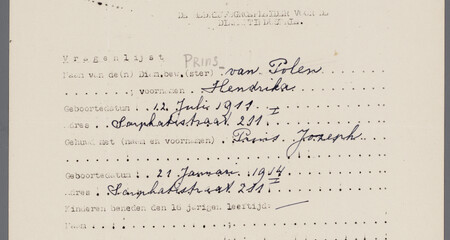 Vragenlijst PRINS
Naam van de(n) Dien.bew.(ster) van Polen
" ; voornamen Hendrika
Geboortedatum 12 Juli 1911
Adres Sarphatistraat 231 I
Gehuwd met (naam en voornamen) Prins Jozeph
Geboortedatum 21 Januari 1914
Adres Sarphatistraat 231 I
Kinderen beneden den 16 jarigen leeftijd: —
Naam